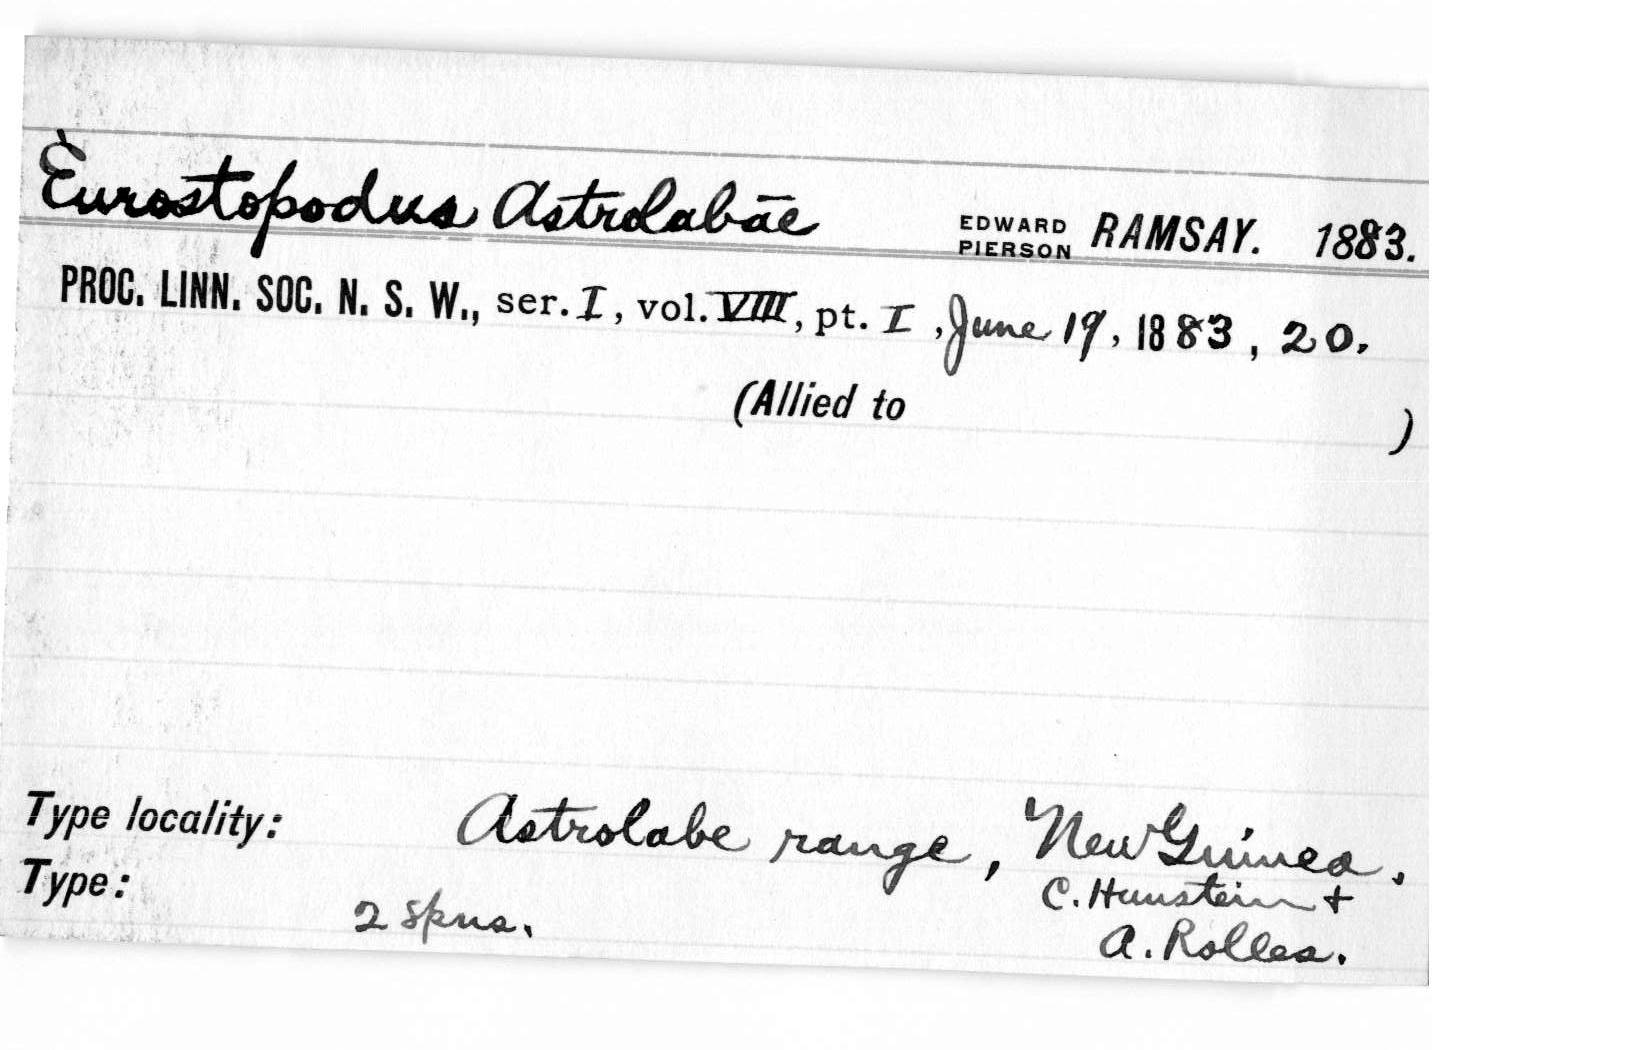 Eurostopodus Astrolabae EDWARD PIERSON RAMSAY. 1883.
PROC. LINN. SOC. N. S. W., ser. I, vol. VIII, pt. I, June 19, 1883, 20.
(Allied to )
Type locality: Astrolabe range, New Guinea.
Type: 2 spns. C. Hunstein +
A. Rolles.